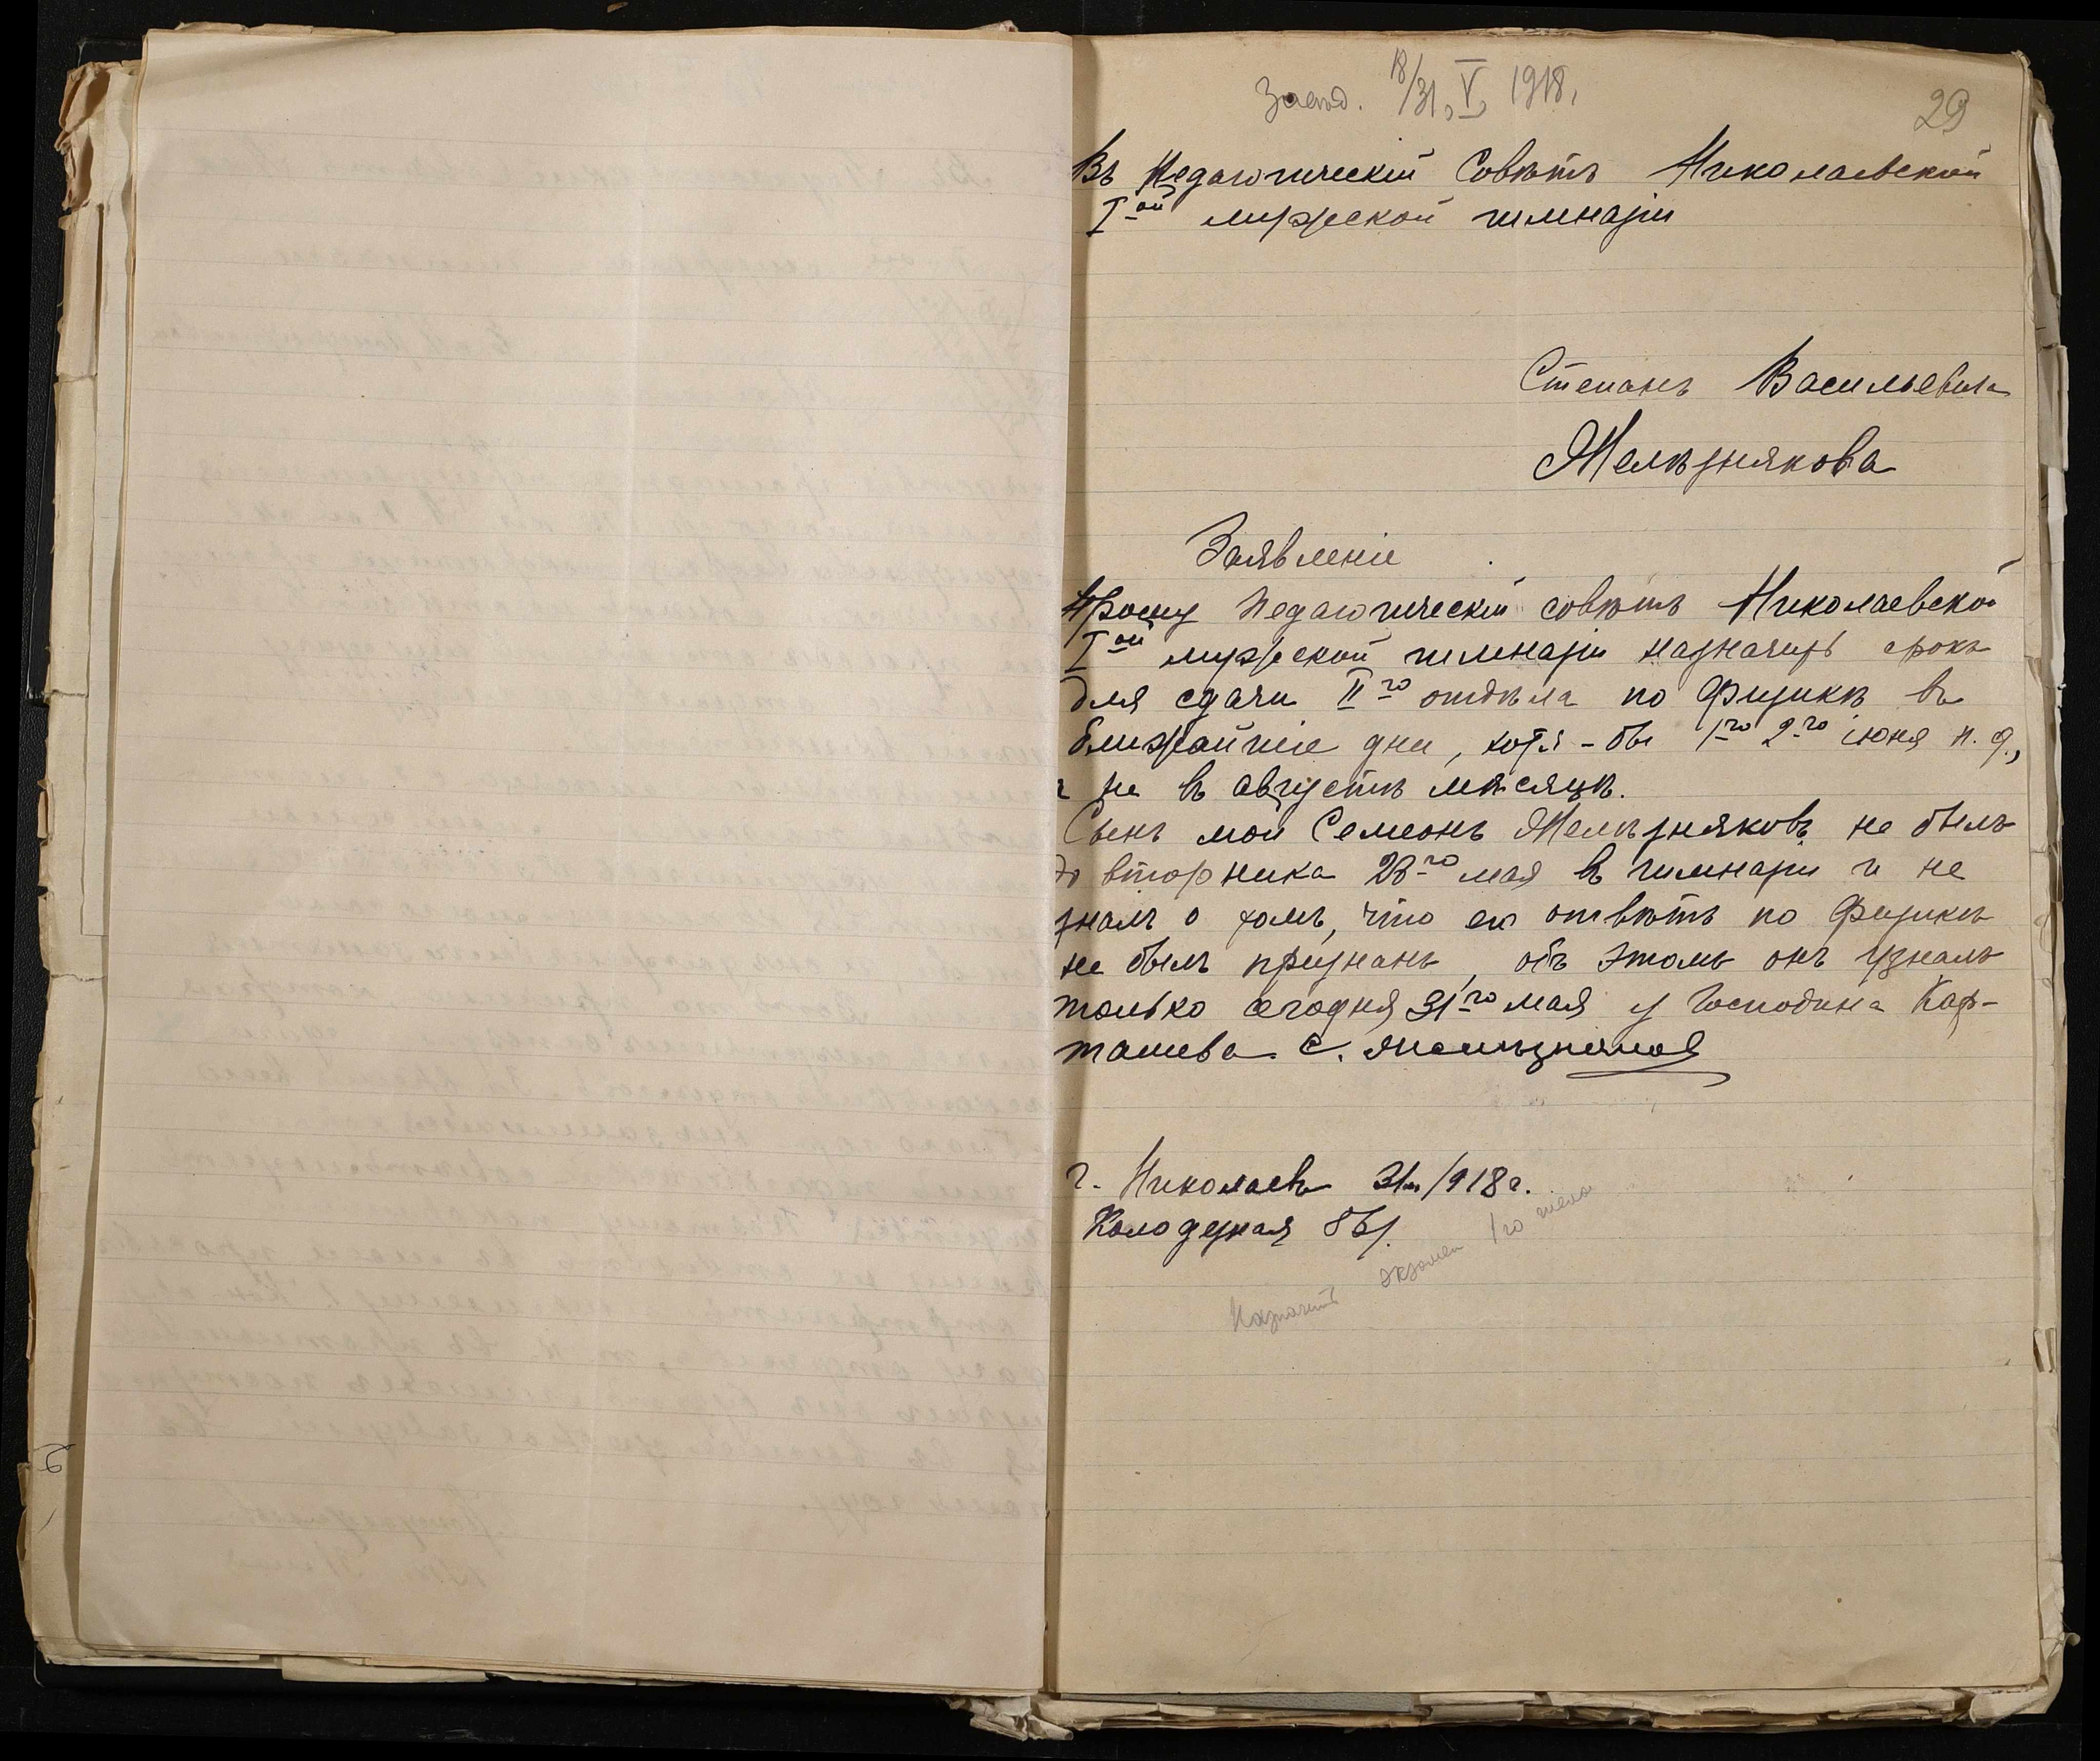 Засѣд. 18/31, V, 1918,
29
Въ Педагогическій Совѣтъ Николаевской
Iой мужской гимназіи
Степанъ Васильевича
Желѣзнякова
Заявленіе
Прошу Педагогическій совѣтъ Николаевской
Iой мужской гимназіи назначить срокъ
для сдачи IIго отдѣла по Физикѣ въ
ближайшіе дни, хотя-бы 1го 2го іюня н.
не въ августѣ мѣсяцѣ.
Сынъ мой Семеонъ Желѣзняковъ не былъ
до вторника 28го мая въ гимназіи и не
зналъ о томъ, что его отвѣтъ по Физикѣ
не былъ признанъ, объ этомъ онъ узналъ
только сегодня 31го мая у Господина Кар-
ташева. С. Желѣзняковъ
г. Николаевъ 31 /918 г.
Колодезная
Назначить экзамен 1го